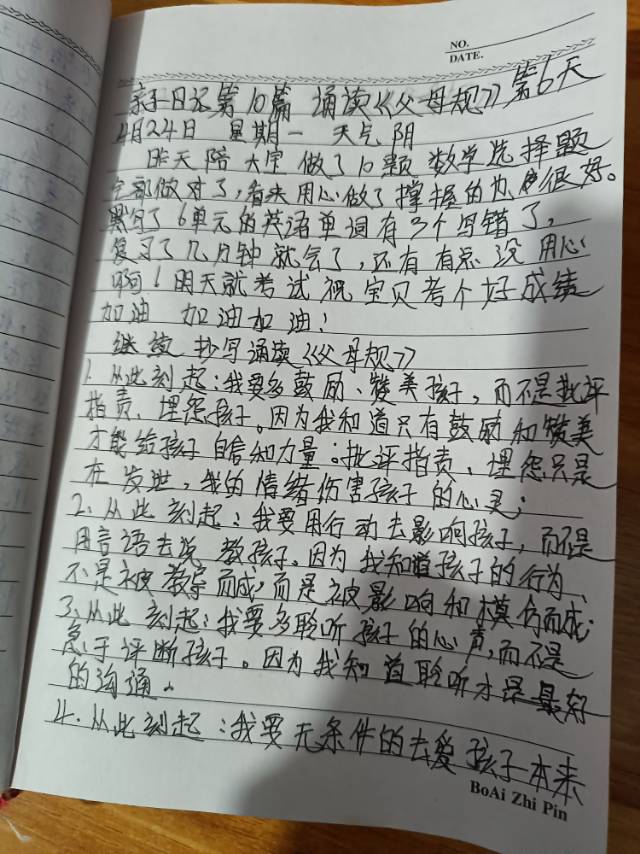 NO.
DATE.
亲子日记第10篇 诵读《父母规》第6天
4月24日 星期一 天气 阴
昨天陪大宝做了10颗数学选择题
全部做对了,看来用心做了撑握的为很好。
默写了6单元的英语单词有3个写错了,
复习了几分钟就会了,还有有点没用心
啊!明天就考试祝宝贝考个好成绩
加油 加油加油!
继续抄写诵读《父母规》
1.从此刻起:我要多鼓励、赞美孩子,而不是批评
指责、埋怨孩子。因为我知道只有鼓励和赞美
才能给孩子自信和力量。批评指责、埋怨只是
在发泄,我的情绪伤害孩子的心灵;
2.从此刻起:我要用行动去影响孩子,而不是
用言语去说教孩子。因为我知道孩子的行为、
不是被教导而成,而是被影响和模仿而成;
3.从此刻起:我要多聆听孩子的心声,而不是
急于评断孩子。因为我知道聆听才是最好
的沟通。
4.从此刻起:我要无条件的去爱孩子本来
BoAi Zhi Pin